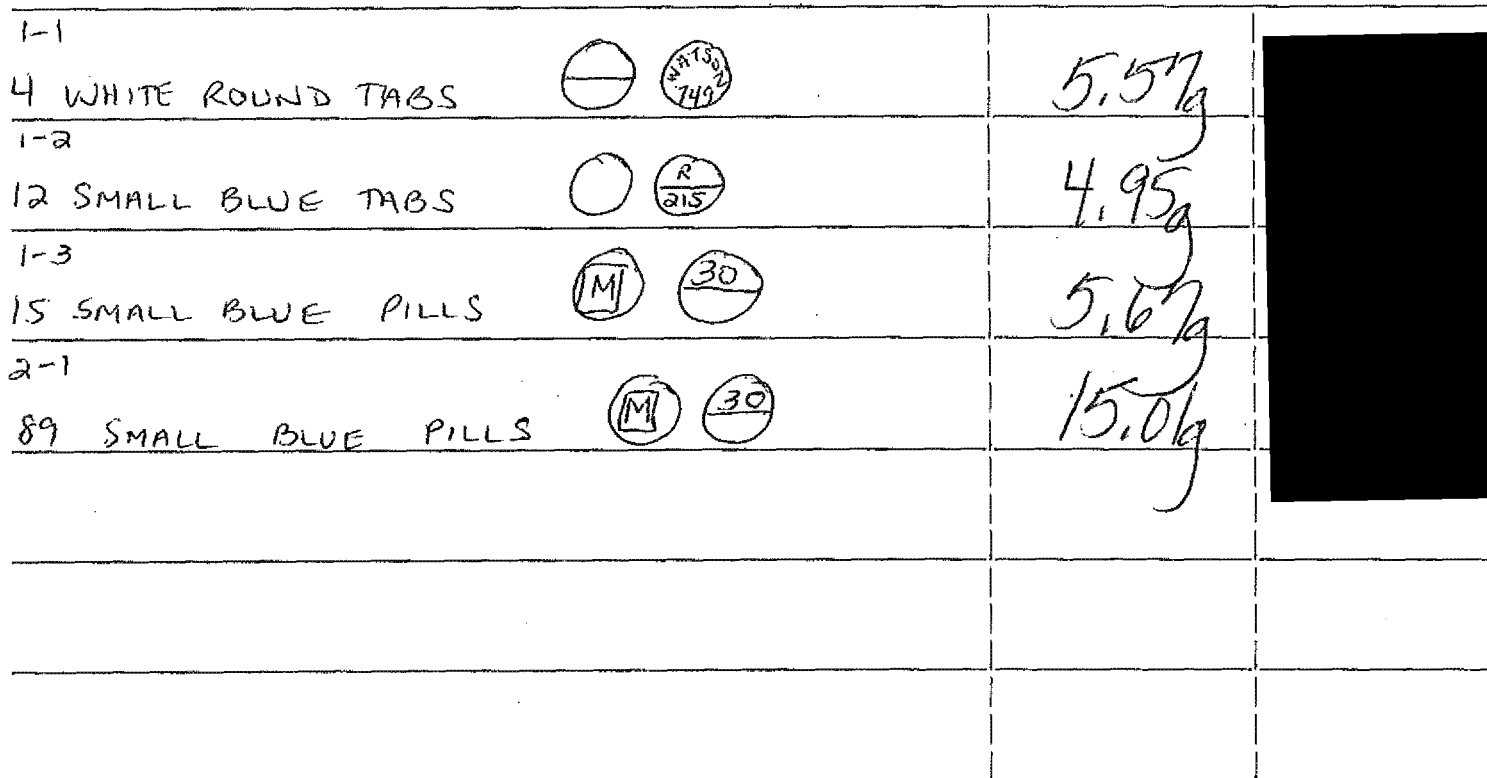 1-1
4 WHITE ROUND TABS WATSON 749 5.57g
1-2
12 SMALL BLUE TABS R 215 4.95g
1-3
15 SMALL BLUE PILLS M 30 5.67g
2-1
89 SMALL BLUE PILLS M 30 15.01g